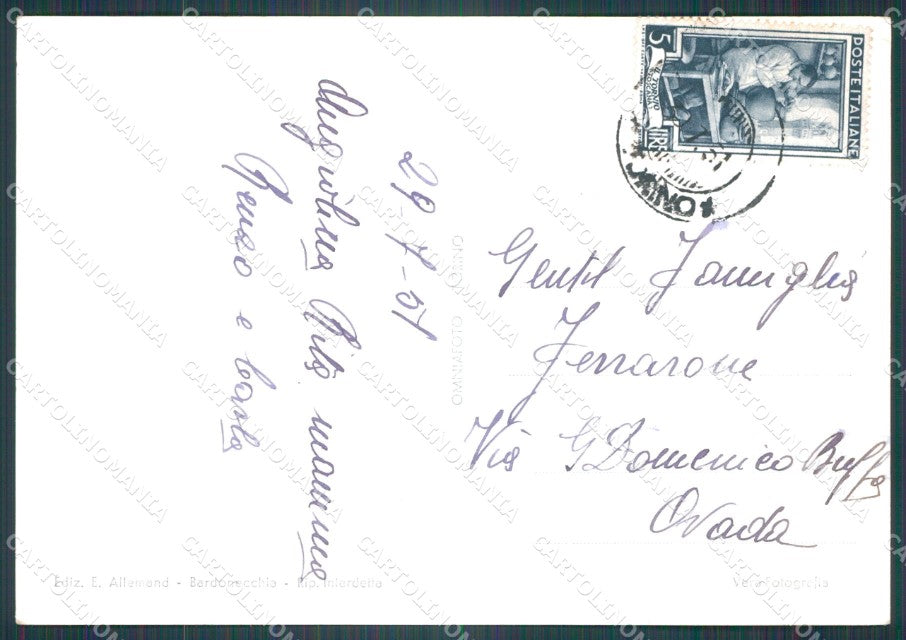 29-7-51
Angiolina Rita mamma
Renzo e Carla
Gentil Famiglia
Ferrarone
Via G Domenico Buffa
Ovada
5
LIRE
POSTE ITALIANE
OMNIAFOTO - TORINO
Ediz. E. Allemand - Bardonecchia - Rip. Interdetta
Vera Fotografia
CARTOLINOMANIA